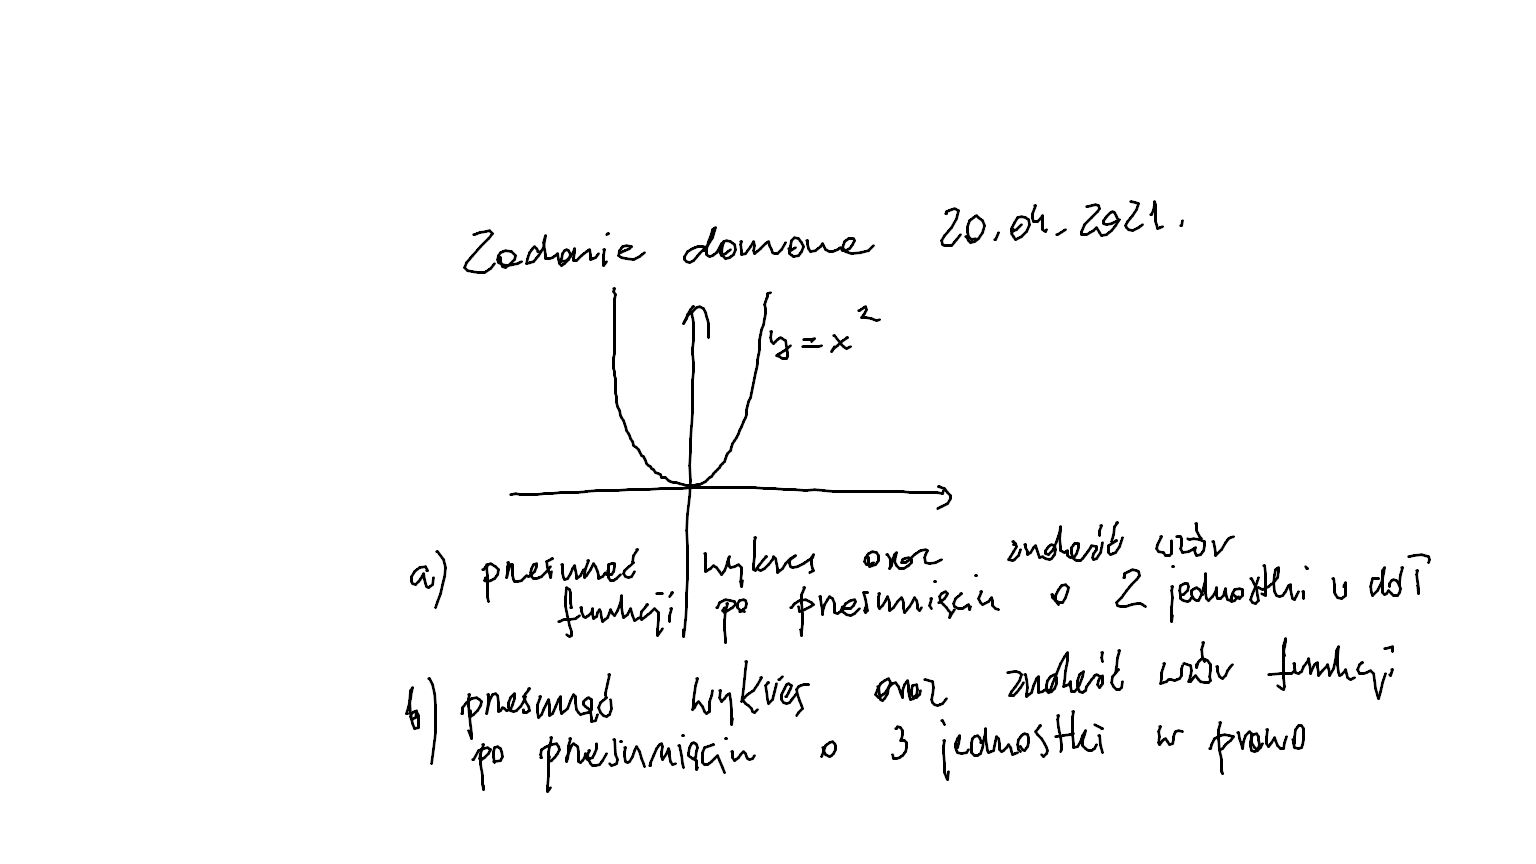 Zadanie domowe 20.04.2021.
y = x²
a) przesunąć wykres oraz znaleźć wzór
funkcji po przesunięciu o 2 jednostki w dół
b) przesunąć wykres oraz znaleźć wzór funkcji
po przesunięciu o 3 jednostki w prawo